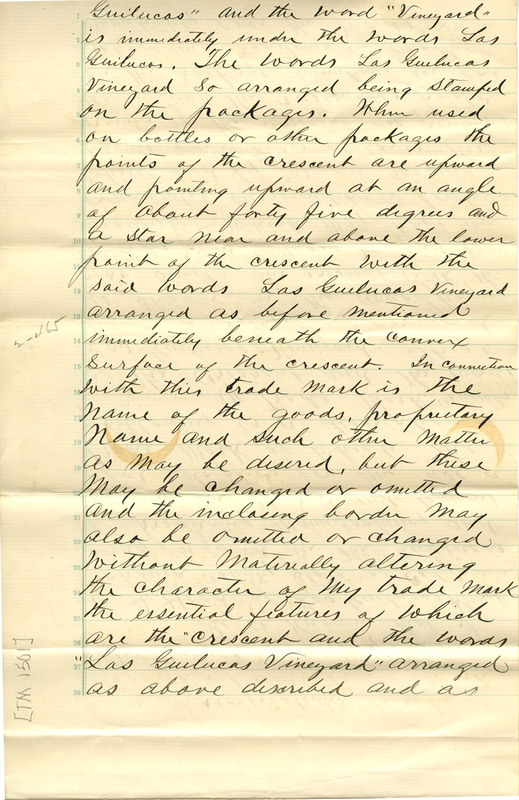 Guilucos" and the word "Vineyard"
is immediately under the words Las
Guilucos. The words Las Guilucas
Vineyard so arranged being stamped
on the packages. When used
on bottles or other packages the
points of the crescent are upward
and pointing upward at an angle
of about forty five degrees and
a star near and above the lower
point of the crescent with the
said words Las Guilucas Vineyard
arranged as before mentioned
immediately beneath the convex
surface of the crescent. In connection
with this trade mark is the
name of the goods, proprietary
name and such other matter
as may be desired, but these
may be changed or omitted
and the inclosing border may
also be omitted or changed
without materially altering
the character of my trade mark
the essential features of which
are the "crescent and the words
"Las Guilucas Vineyard" arranged
as above described and as
2-265
[TM 1501]